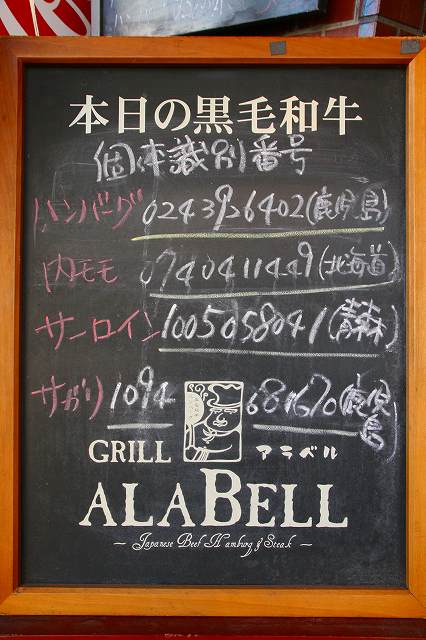 本日の黒毛和牛
個体識別番号
ハンバーグ 0243926402(鹿児島)
内モモ 0740411449(北海道)
サーロイン 1005058041(青森)
サガリ 1094 681670(鹿児島)
GRILL アラベル
ALABELL
Japanese Beef Hamburg & Steak